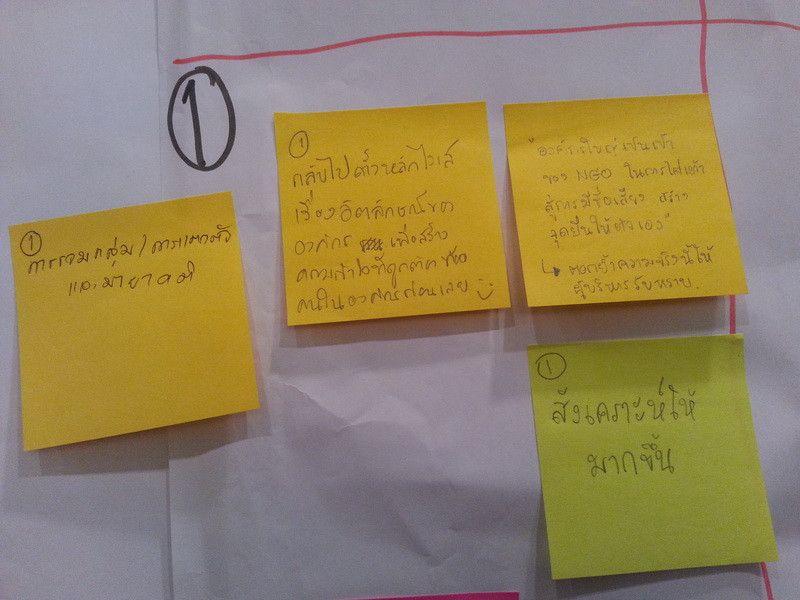 1
1
การรวมกลุ่ม / การแตกตัว
และมายาคติ
1
กลับไปตั้งหลักไวเลส์
เรื่องอัตลักษณ์ของ
องค์กร เพื่อสร้าง
ความเข้าใจที่ถูกต้อง ของ
คนในองค์กรก่อนเลย
"องค์กรใหญ่เป็นเป้า
ของ NGO ในการไต่เต้า
สู่การมีชื่อเสียง สร้าง
จุดยืนให้ตัวเอง"
↳ ตอกย้ำความจริงนี้ให้
ผู้บริหารรับทราบ.
1
สังเคราะห์ให้
มากขึ้น